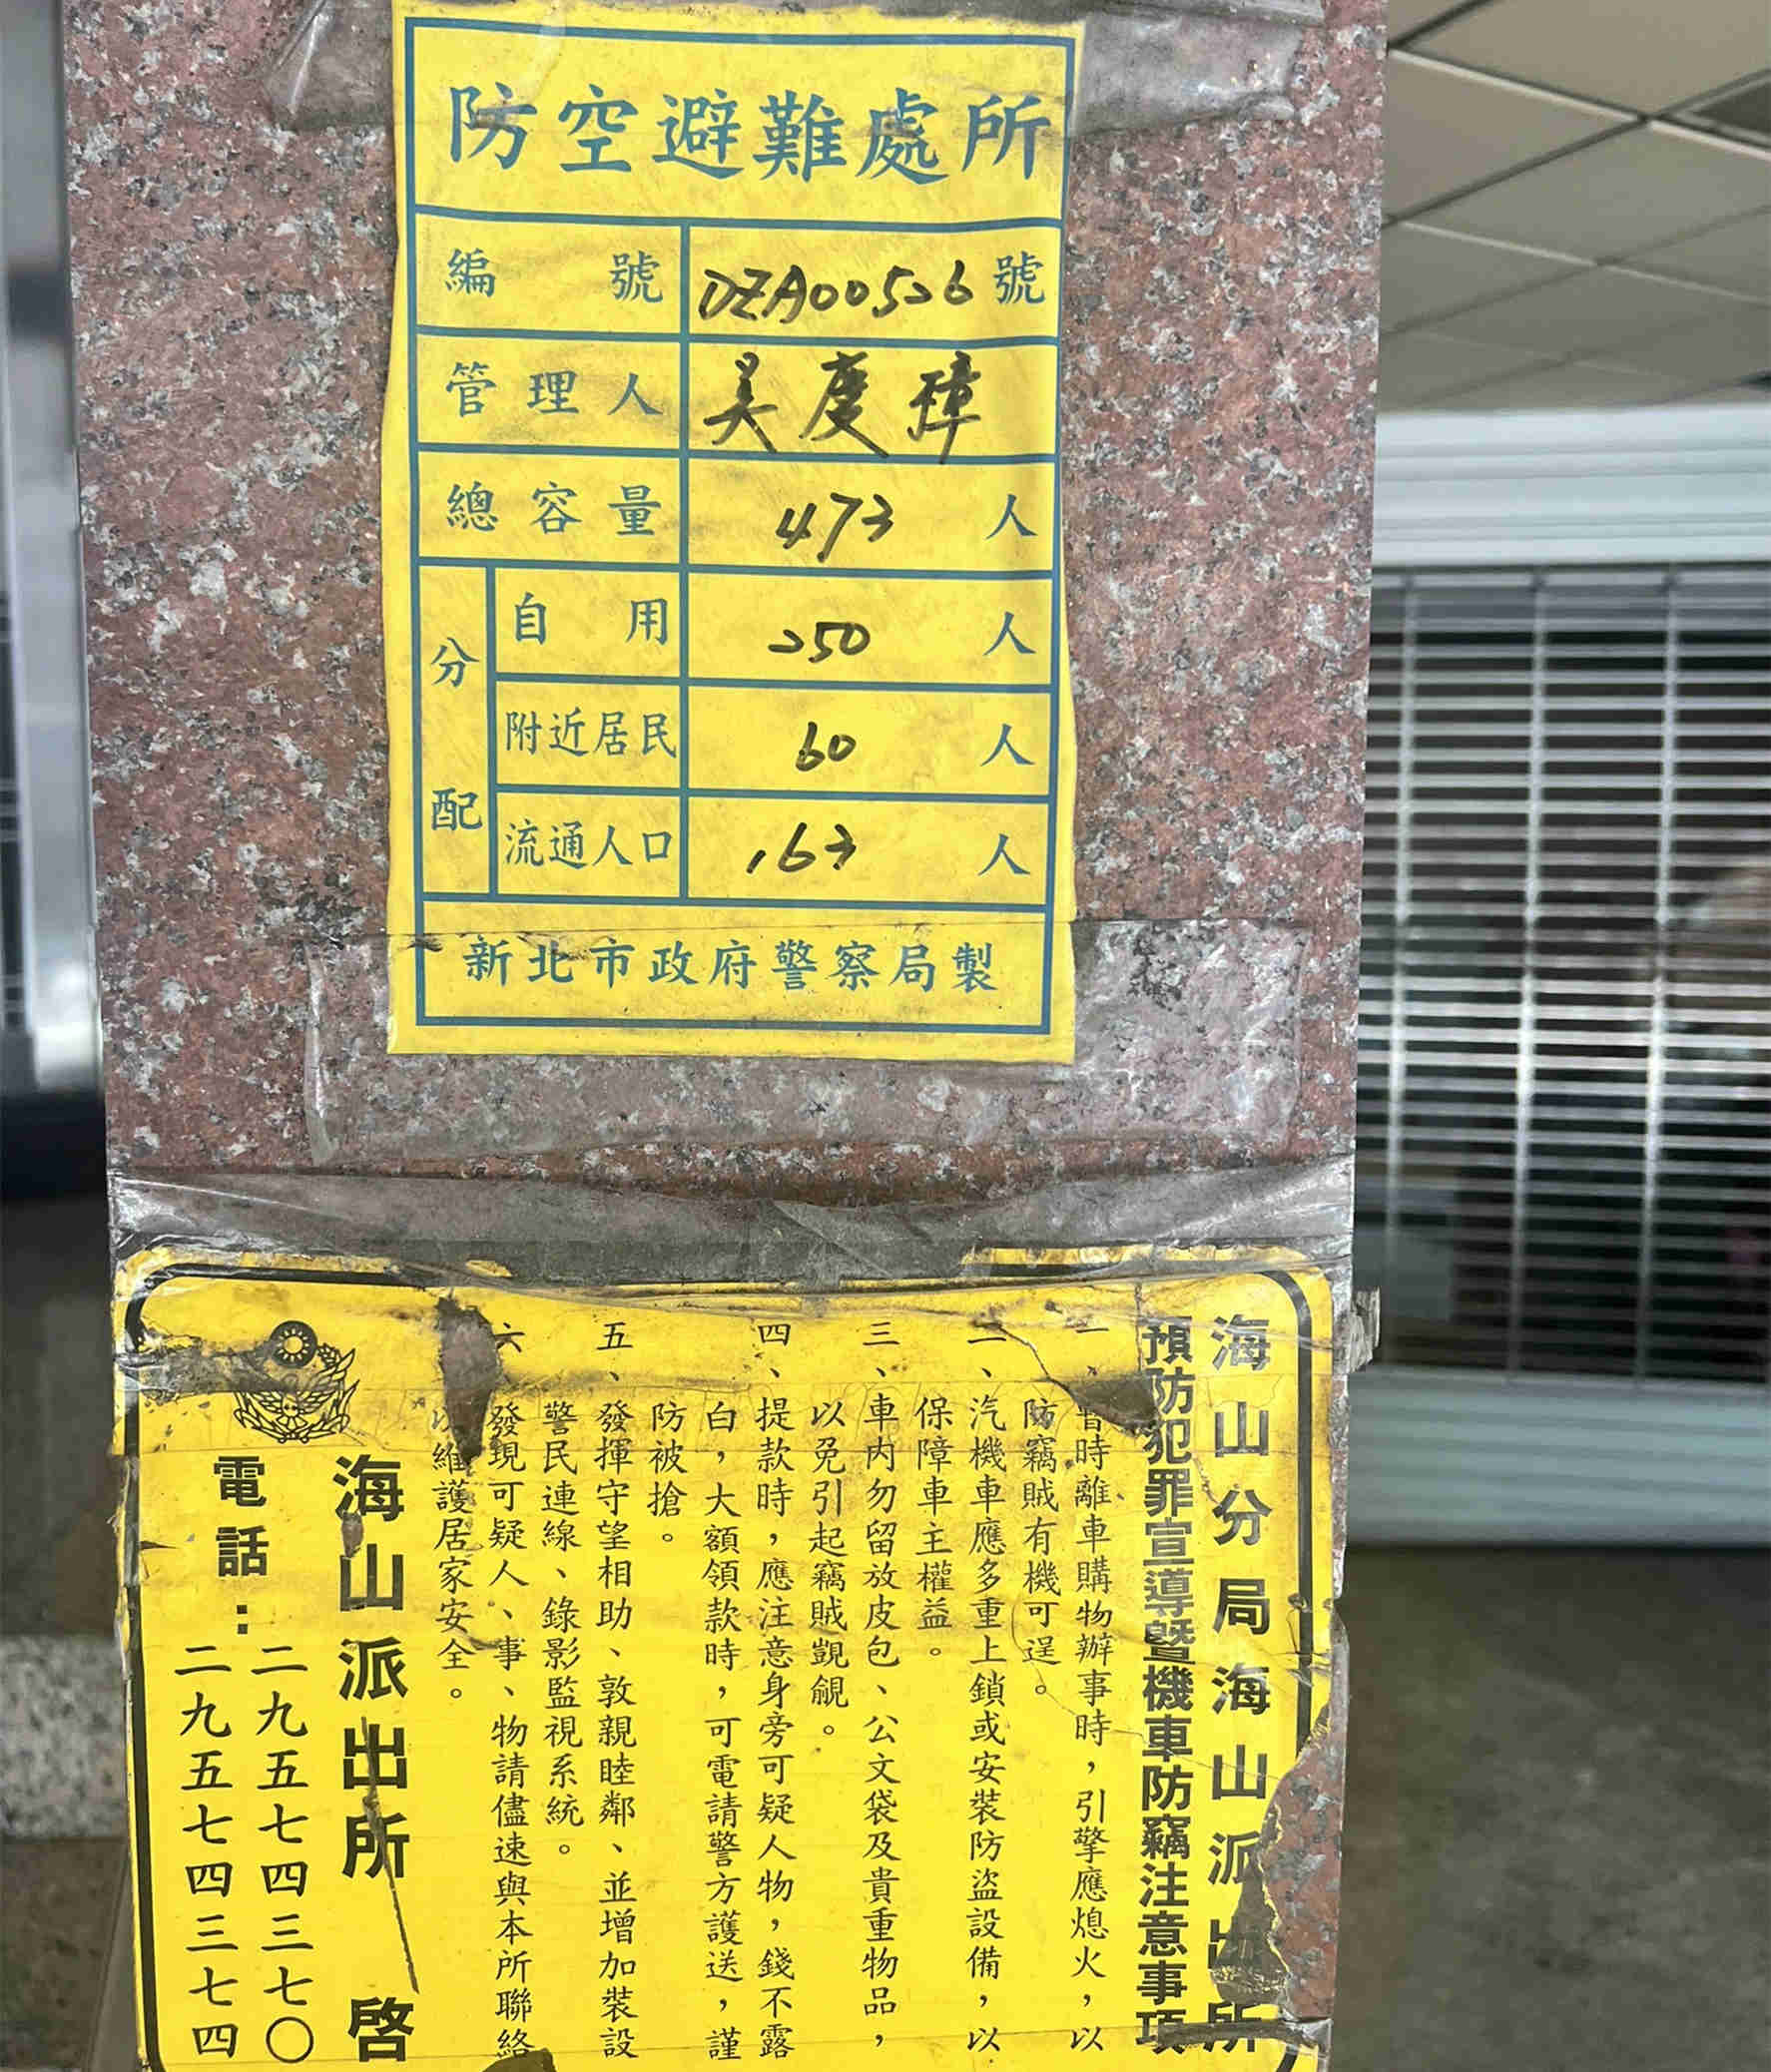 防空避難處所
編號 DZA00526號
管理人 吳慶璋
總容量 473人
分配
自用 250人
附近居民 60人
流通人口 163人
新北市政府警察局製
海山分局海山派出所
預防犯罪宣導暨機車防竊注意事項
一、暫時離車購物辦事時，引擎應熄火，以
防竊賊有機可逞。
二、汽機車應多重上鎖或安裝防盜設備，以
保障車主權益。
三、車內勿留放皮包、公文袋及貴重物品，
以免引起竊賊覬覦。
四、提款時，應注意身旁可疑人物，錢不露
白，大額領款時，可電請警方護送，謹
防被搶。
五、發揮守望相助、敦親睦鄰、並增加裝設
警民連線、錄影監視系統。
六、發現可疑人、事、物請儘速與本所聯絡
以維護居家安全。
海山派出所 啓
電話：二九五七四三七〇
二九五七四三七四